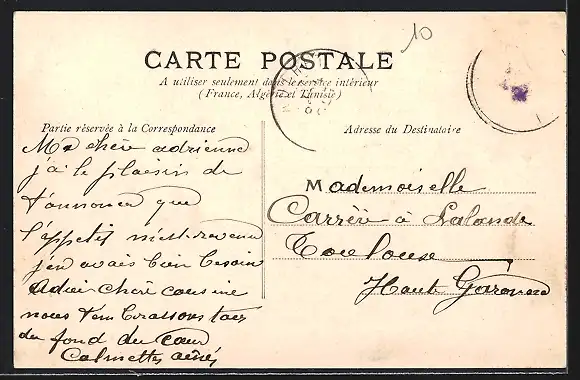 10
CARTE POSTALE
A utiliser seulement dans le service intérieur
(France, Algérie et Tunisie)
Partie réservée à la Correspondance
Adresse du Destinataire
Ma chere adrienne
j'ai le plaisir de
t'annoncer que
l'appetit m'est revenu
j'en avais bien besoin
Adieu chere cousine
nous t'embrassons tous
du fond du cœur
Calmettes ainés
Mademoiselle
Carrère à Lalande
Toulouse
Haute Garonne